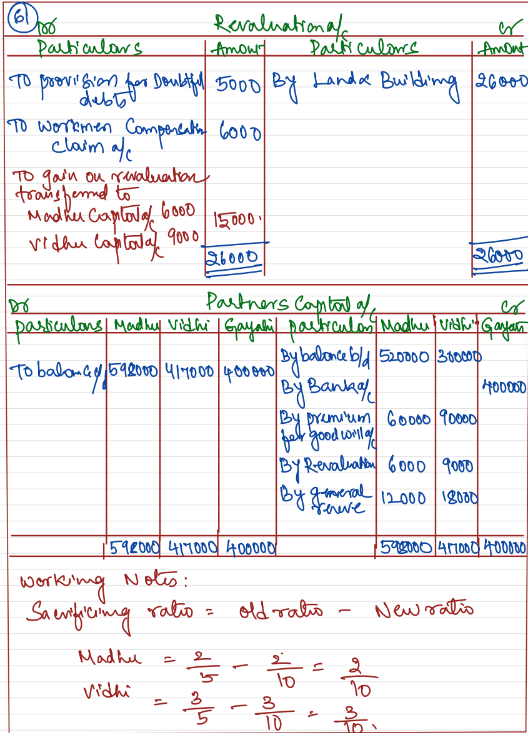 61
Dr Revaluation a/c Cr
Particulars Amount Particulars Amount
To provision for Doubtful debts 5000 By Land & Building 26000
To workmen Compensation claim a/c 6000
To gain on revaluation transferred to
Madhu Capital a/c 6000 15000.
Vidhu Capital a/c 9000
26000 26000
Dr Partners Capital a/c Cr
particulars Madhu Vidhi Gayatri particulars Madhu Vidhi Gayatri
To balance c/d 598000 417000 400000 By balance b/d 520000 300000
By Bank a/c 400000
By premium for good will a/c 60000 90000
By Revaluation 6000 9000
By general reserve 12000 18000
598000 417000 400000 598000 417000 400000
working Notes:
Sacrificing ratio = old ratio - New ratio
Madhu = 2/5 - 2/10 = 2/10
Vidhi = 3/5 - 3/10 = 3/10.